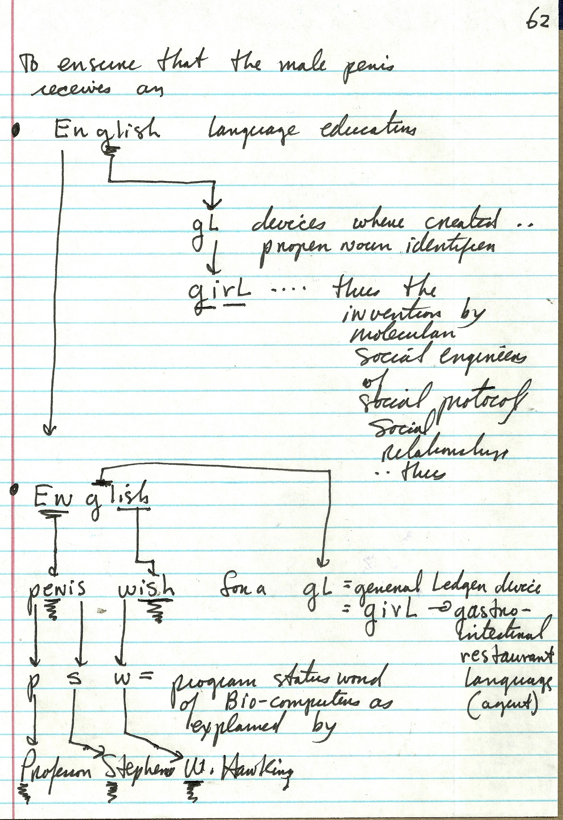 62
To ensure that the male penis
receives an
• English language education
gL devices where created ..
proper noun identifier
girL .... thus the
invention by
molecular
social engineers
of
social protocol
social
relationships
.. thus
• English
penis wish for a gL = general Ledger device
= girL → gastro-
intestinal
restaurant
Language
(agent)
p s w = program status word
of Bio-computers as
explained by
Professor Stephen W. Hawking